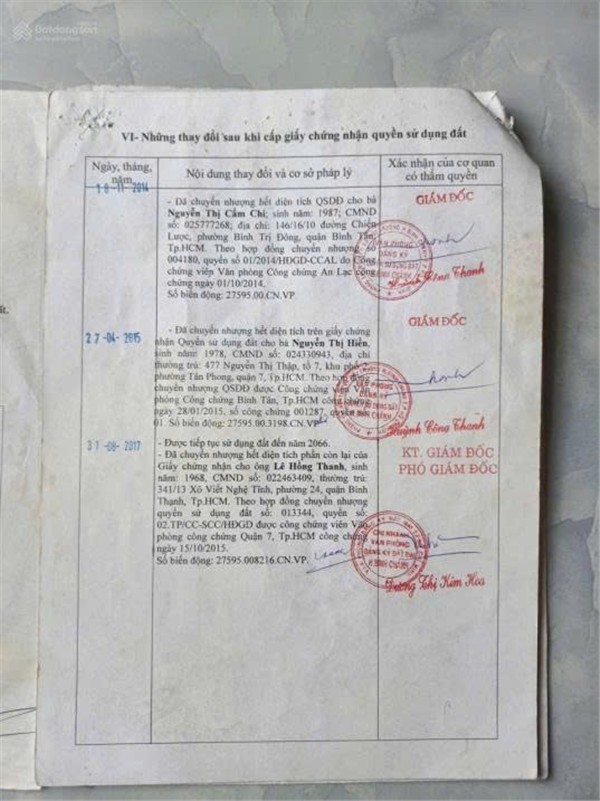 Batdongsan
VI- Những thay đổi sau khi cấp giấy chứng nhận quyền sử dụng đất
Ngày, tháng, năm
Nội dung thay đổi và cơ sở pháp lý
Xác nhận của cơ quan có thẩm quyền
18-11-2014
- Đã chuyển nhượng hết diện tích QSDĐ cho bà
Nguyễn Thị Cẩm Chi; sinh năm: 1987; CMND
số: 025777268; địa chỉ: 146/16/10 đường Chiến
Lược, phường Bình Trị Đông, quận Bình Tân,
Tp.HCM. Theo hợp đồng chuyển nhượng số
004180, quyển số 01/2014/HĐGD-CCAL do Công
chứng viên Văn phòng Công chứng An Lạc công
chứng ngày 01/10/2014.
Số biến động: 27595.00.CN.VP.
GIÁM ĐỐC
Huỳnh Công Thanh
27-04-2015
- Đã chuyển nhượng hết diện tích trên giấy chứng
nhận Quyền sử dụng đất cho bà Nguyễn Thị Hiền,
sinh năm: 1978, CMND số: 024330943, địa chỉ
thường trú: 477 Nguyễn Thị Thập, tổ 7, khu phố
phường Tân Phong, quận 7, Tp.HCM. Theo hợp đồng
chuyển nhượng QSDĐ được Công chứng viên Văn
phòng Công chứng Bình Tân, Tp.HCM công chứng
ngày 28/01/2015, số công chứng 001287, quyển
01. Số biến động: 27595.00.3198.CN.VP
GIÁM ĐỐC
Huỳnh Công Thanh
31-08-2017
- Được tiếp tục sử dụng đất đến năm 2066.
- Đã chuyển nhượng hết diện tích phần còn lại của
Giấy chứng nhận cho ông Lê Hồng Thanh, sinh
năm: 1968, CMND số: 022463409, thường trú:
341/13 Xô Viết Nghệ Tĩnh, phường 24, quận Bình
Thạnh, Tp.HCM. Theo hợp đồng chuyển nhượng
quyền sử dụng đất số: 013344, quyển số:
02.TP/CC-SCC/HĐGD được công chứng viên Văn
phòng công chứng Quận 7, Tp.HCM công chứng
ngày 15/10/2015.
Số biến động: 27595.008216.CN.VP.
KT. GIÁM ĐỐC
PHÓ GIÁM ĐỐC
CHI NHÁNH
VĂN PHÒNG
ĐĂNG KÝ ĐẤT ĐAI
H.BÌNH CHÁNH
Dương Thị Kim Hoa